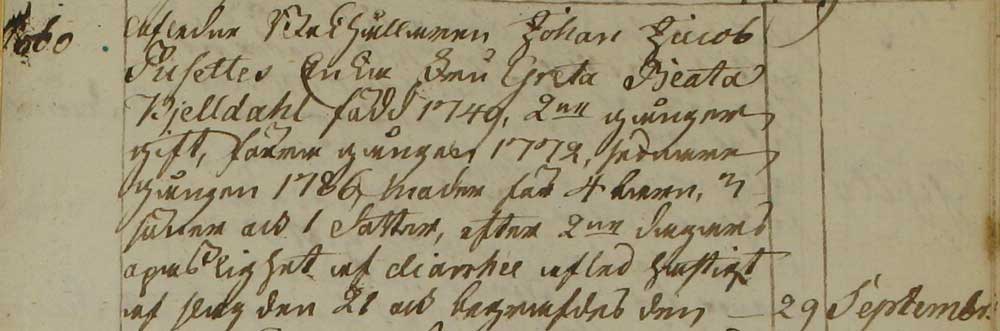 afledne Stekhullaren Johan Jacob
Pusettes Enka Fru Greta Beata
Kjelldahl född 1749, 2ne gånger
gift, förra gången 1772, sednare
gången 1786, moder för 4 barn, 3
söner och 1 dotter, efter 2ne dagars
opasslighet af diarrhee afled hastigt
af slag den 21 och begrafdes den — 29 Septembr.